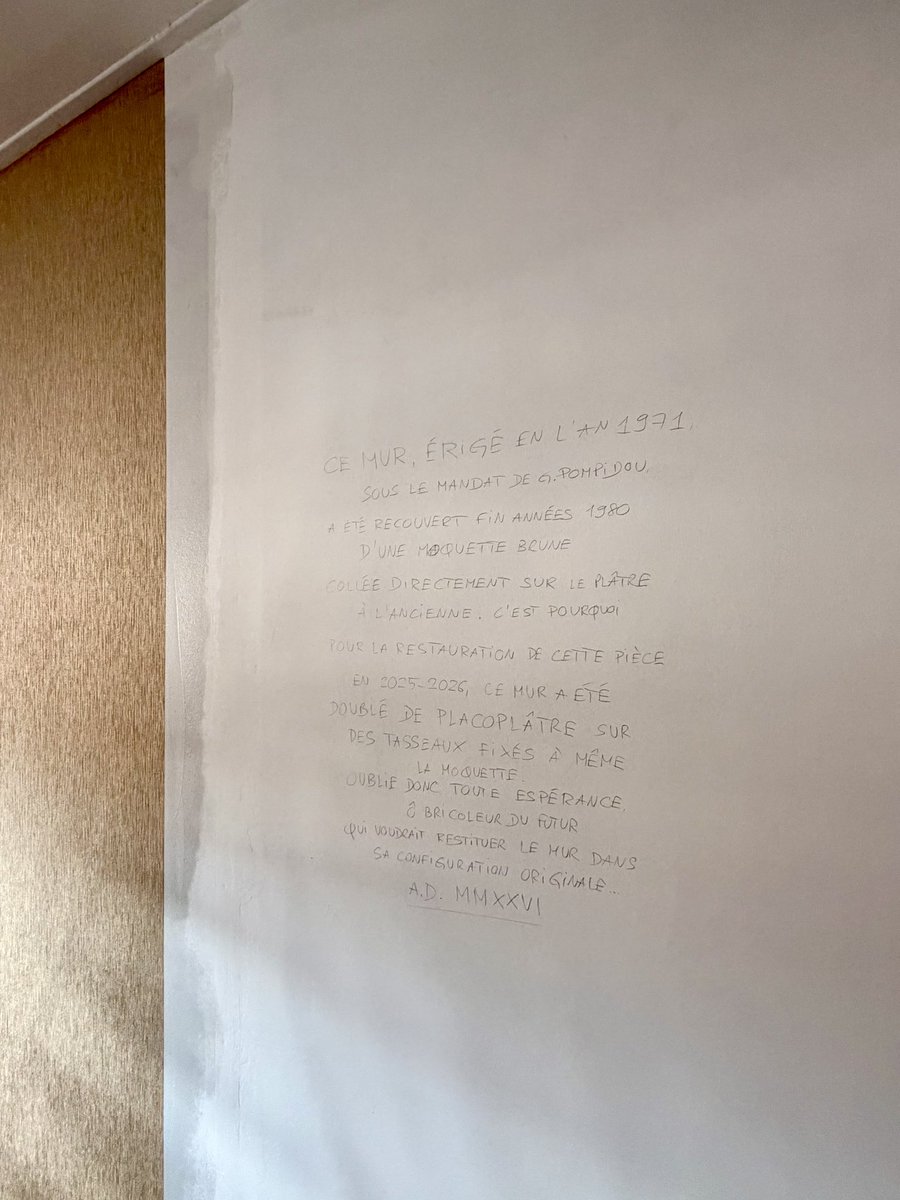 CE MUR, ÉRIGÉ EN L'AN 1971,
SOUS LE MANDAT DE G. POMPIDOU,
A ÉTÉ RECOUVERT FIN ANNÉES 1980
D'UNE MOQUETTE BRUNE
COLLÉE DIRECTEMENT SUR LE PLÂTRE
À L'ANCIENNE. C'EST POURQUOI
POUR LA RESTAURATION DE CETTE PIÈCE
EN 2025-2026, CE MUR A ÉTÉ
DOUBLÉ DE PLACOPLÂTRE SUR
DES TASSEAUX FIXÉS À MÊME
LA MOQUETTE.
OUBLIE DONC TOUTE ESPÉRANCE,
Ô BRICOLEUR DU FUTUR
QUI VOUDRAIT RESTITUER LE MUR DANS
SA CONFIGURATION ORIGINALE...
A.D. MMXXVI